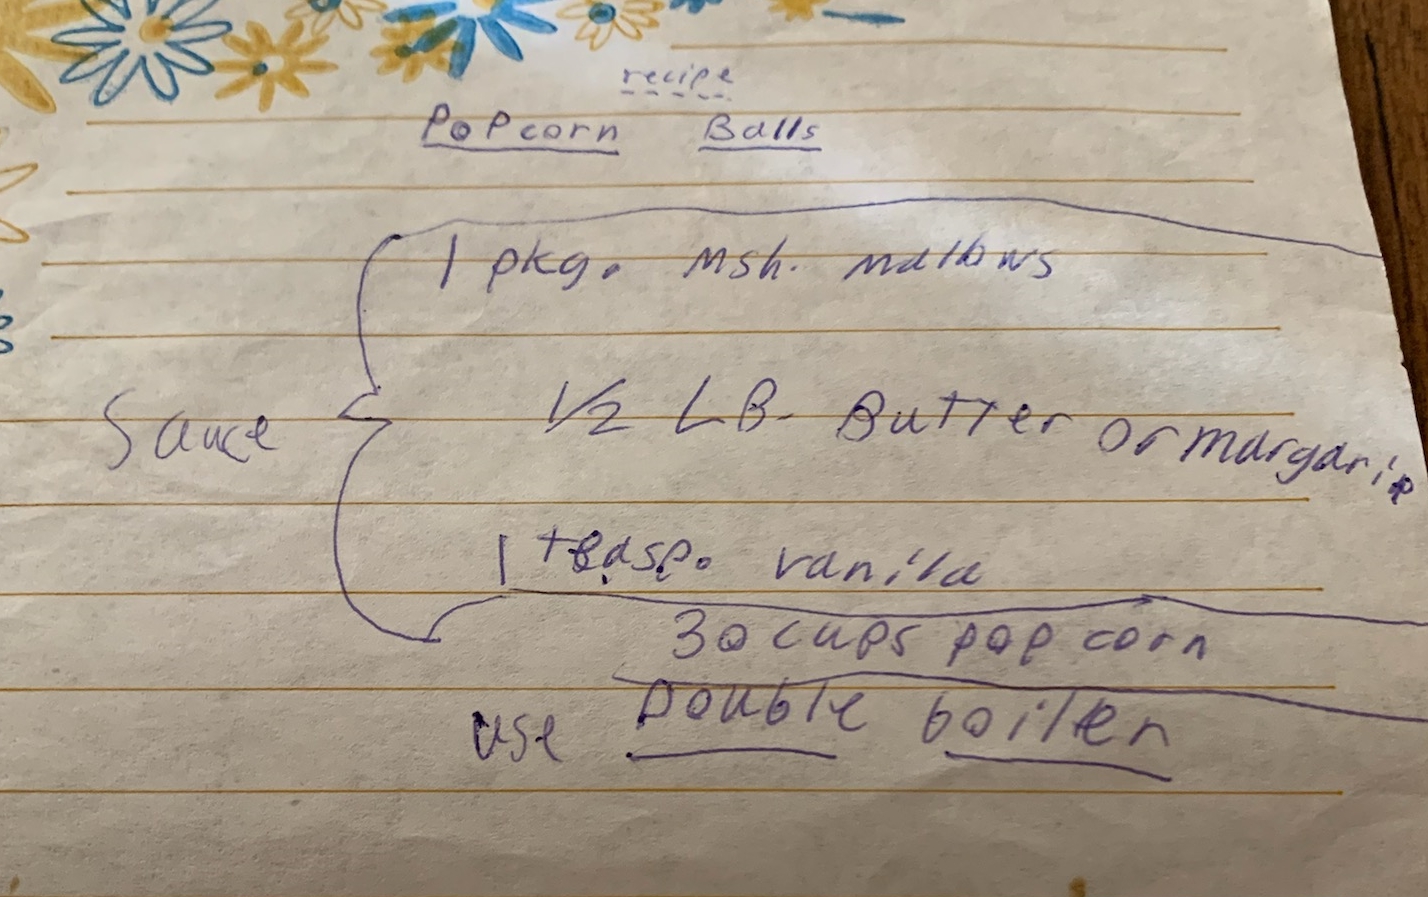 recipe
Popcorn Balls
1 pkg. Msh. mallows
Sauce 1/2 LB. Butter or margarin
1 teasp. vanila
30 cups pop corn
use Double boiler